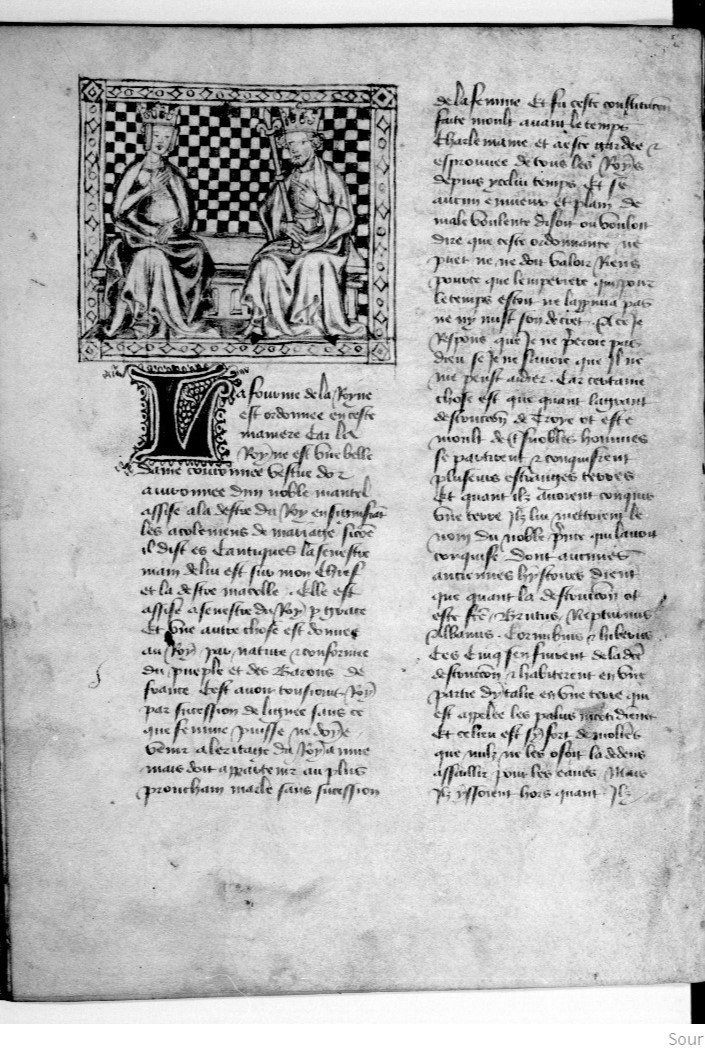 La fourme de la Royne
est ordonnee en ceste
maniere Car la
Royne est vne belle
dame couronnee vestue dor
auironnee dun noble mantel
assise a la destre du Roy
les acolemens de mariage sicõe
il dist es Cantiques la senestre
main de lui est sur mon Chief
et la destre macolle. Elle est
assise a senestre du Roy p grace
Et vne autre chose est donnee
au Roy par nature & confermee
du pueple et des Barons de
france Cest auoir tousiours Roy
par sucession de lignee sans ce
que femme puisse ne doye
venir a leritage du Royaume
mais doit appartenir au plus
prouchain masle sans sucession
de la femme Et fu ceste constitucion
faite moult auant le temps
Charlemaine et a este gardee &
esprouuee de tous les Roys
depuis ycelui temps Et se
aucun enuieux et plain de
male voulente disoit ou vouloit
dire que ceste ordonnance ne
puet ne ne doit valoir Riens
pource que lemperere qui pour
le temps estoit ne lapprua pas
ne ny mist son decret. A ce Je
Respons que Je ne
dieu se Je ne sauoie que Il ne
me peust aidier. Car certaine
chose est que quant la grant
destruccõn de Troye ot este
moult de nobles hommes
se partirent & conquistrent
plusieurs estranges terres
Et quant ilz auoient conquis
vne terre Ilz lui mettoient le
nom du noble prince qui lauoit
conquise. Dont aucunes
anciennes hystoires dient
que quant la destruccõn ot
este fcẽ. Brutus. Neptunus
Albanus. Corinbius & liberius
Ces Cinq sen fuirent de la dcẽ
destruccõn & habiterent en vne
partie dytalie en vne terre qui
est appelee les palus
Et ce lieu est sy fort de
que nulz ne les osoit la dedens
assaillir pour les eaues. Mais
Ilz yssoient hors quant. Ilz
Sour